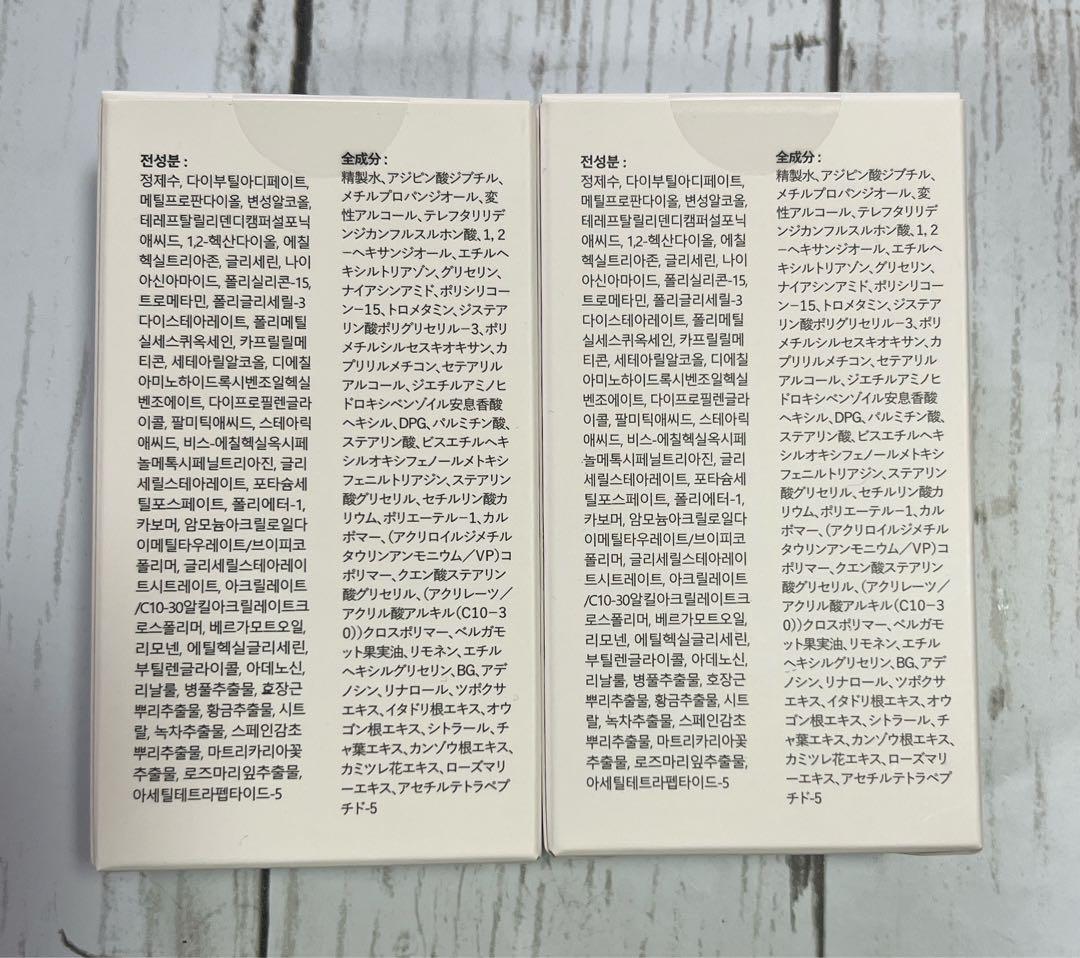 전성분 :
정제수, 다이부틸아디페이트,
메틸프로판다이올, 변성알코올,
테레프탈릴리덴디캠퍼설포닉
애씨드, 1,2-헥산다이올, 에칠
헥실트리아존, 글리세린, 나이
아신아마이드, 폴리실리콘-15,
트로메타민, 폴리글리세릴-3
다이스테아레이트, 폴리메틸
실세스퀴옥세인, 카프릴릴메
티콘, 세테아릴알코올, 디에칠
아미노하이드록시벤조일헥실
벤조에이트, 다이프로필렌글라
이콜, 팔미틱애씨드, 스테아릭
애씨드, 비스-에칠헥실옥시페
놀메톡시페닐트리아진, 글리
세릴스테아레이트, 포타슘세
틸포스페이트, 폴리에터-1,
카보머, 암모늄아크릴로일다
이메틸타우레이트/브이피코
폴리머, 글리세릴스테아레이
트시트레이트, 아크릴레이트
/C10-30알킬아크릴레이트크
로스폴리머, 베르가모트오일,
리모넨, 에틸헥실글리세린,
부틸렌글라이콜, 아데노신,
리날룰, 병풀추출물, 호장근
뿌리추출물, 황금추출물, 시트
랄, 녹차추출물, 스페인감초
뿌리추출물, 마트리카리아꽃
추출물, 로즈마리잎추출물,
아세틸테트라펩타이드-5
全成分 :
精製水、アジピン酸ジブチル、
メチルプロパンジオール、変
性アルコール、テレフタリリデ
ンジカンフルスルホン酸、1, 2
−ヘキサンジオール、エチルヘ
キシルトリアゾン、グリセリン、
ナイアシンアミド、ポリシリコー
ン−15、トロメタミン、ジステア
リン酸ポリグリセリル−3、ポリ
メチルシルセスキオキサン、カ
プリリルメチコン、セテアリル
アルコール、ジエチルアミノヒ
ドロキシベンゾイル安息香酸
ヘキシル、DPG、パルミチン酸、
ステアリン酸、ビスエチルヘキ
シルオキシフェノールメトキシ
フェニルトリアジン、ステアリン
酸グリセリル、セチルリン酸カ
リウム、ポリエーテル−1、カル
ボマー、(アクリロイルジメチル
タウリンアンモニウム／VP)コ
ポリマー、クエン酸ステアリン
酸グリセリル、(アクリレーツ／
アクリル酸アルキル(C10−3
0))クロスポリマー、ベルガモ
ット果実油、リモネン、エチル
ヘキシルグリセリン、BG、アデ
ノシン、リナロール、ツボクサ
エキス、イタドリ根エキス、オウ
ゴン根エキス、シトラール、チ
ャ葉エキス、カンゾウ根エキス、
カミツレ花エキス、ローズマリ
ーエキス、アセチルテトラペプ
チド-5
전성분 :
정제수, 다이부틸아디페이트,
메틸프로판다이올, 변성알코올,
테레프탈릴리덴디캠퍼설포닉
애씨드, 1,2-헥산다이올, 에칠
헥실트리아존, 글리세린, 나이
아신아마이드, 폴리실리콘-15,
트로메타민, 폴리글리세릴-3
다이스테아레이트, 폴리메틸
실세스퀴옥세인, 카프릴릴메
티콘, 세테아릴알코올, 디에칠
아미노하이드록시벤조일헥실
벤조에이트, 다이프로필렌글라
이콜, 팔미틱애씨드, 스테아릭
애씨드, 비스-에칠헥실옥시페
놀메톡시페닐트리아진, 글리
세릴스테아레이트, 포타슘세
틸포스페이트, 폴리에터-1,
카보머, 암모늄아크릴로일다
이메틸타우레이트/브이피코
폴리머, 글리세릴스테아레이
트시트레이트, 아크릴레이트
/C10-30알킬아크릴레이트크
로스폴리머, 베르가모트오일,
리모넨, 에틸헥실글리세린,
부틸렌글라이콜, 아데노신,
리날룰, 병풀추출물, 호장근
뿌리추출물, 황금추출물, 시트
랄, 녹차추출물, 스페인감초
뿌리추출물, 마트리카리아꽃
추출물, 로즈마리잎추출물,
아세틸테트라펩타이드-5
全成分 :
精製水、アジピン酸ジブチル、
メチルプロパンジオール、変
性アルコール、テレフタリリデ
ンジカンフルスルホン酸、1, 2
−ヘキサンジオール、エチルヘ
キシルトリアゾン、グリセリン、
ナイアシンアミド、ポリシリコー
ン−15、トロメタミン、ジステア
リン酸ポリグリセリル−3、ポリ
メチルシルセスキオキサン、カ
プリリルメチコン、セテアリル
アルコール、ジエチルアミノヒ
ドロキシベンゾイル安息香酸
ヘキシル、DPG、パルミチン酸、
ステアリン酸、ビスエチルヘキ
シルオキシフェノールメトキシ
フェニルトリアジン、ステアリン
酸グリセリル、セチルリン酸カ
リウム、ポリエーテル−1、カル
ボマー、(アクリロイルジメチル
タウリンアンモニウム／VP)コ
ポリマー、クエン酸ステアリン
酸グリセリル、(アクリレーツ／
アクリル酸アルキル(C10−3
0))クロスポリマー、ベルガモ
ット果実油、リモネン、エチル
ヘキシルグリセリン、BG、アデ
ノシン、リナロール、ツボクサ
エキス、イタドリ根エキス、オウ
ゴン根エキス、シトラール、チ
ャ葉エキス、カンゾウ根エキス、
カミツレ花エキス、ローズマリ
ーエキス、アセチルテトラペプ
チド-5